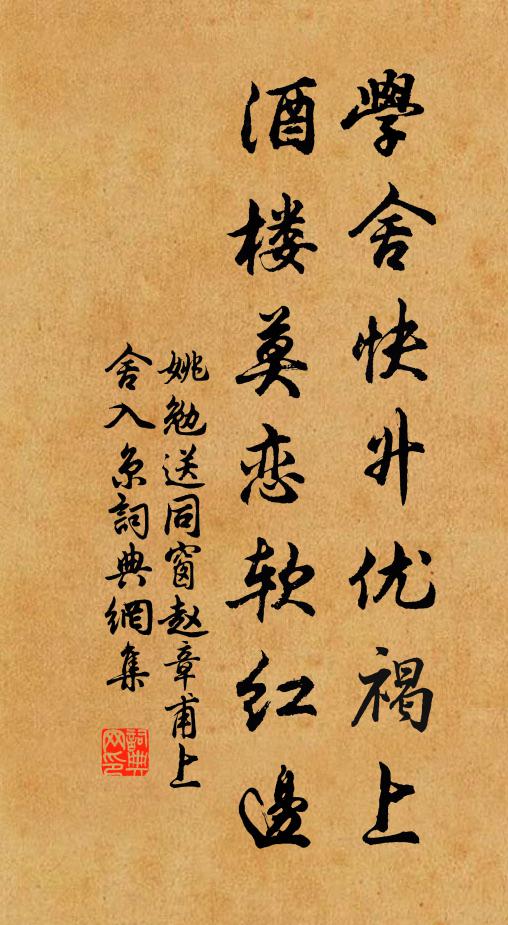 學舍快升优褐上
酒楼莫恋软红邊
姚勉送同窗赵章甫上
舍入京詞典網集
詞典网印